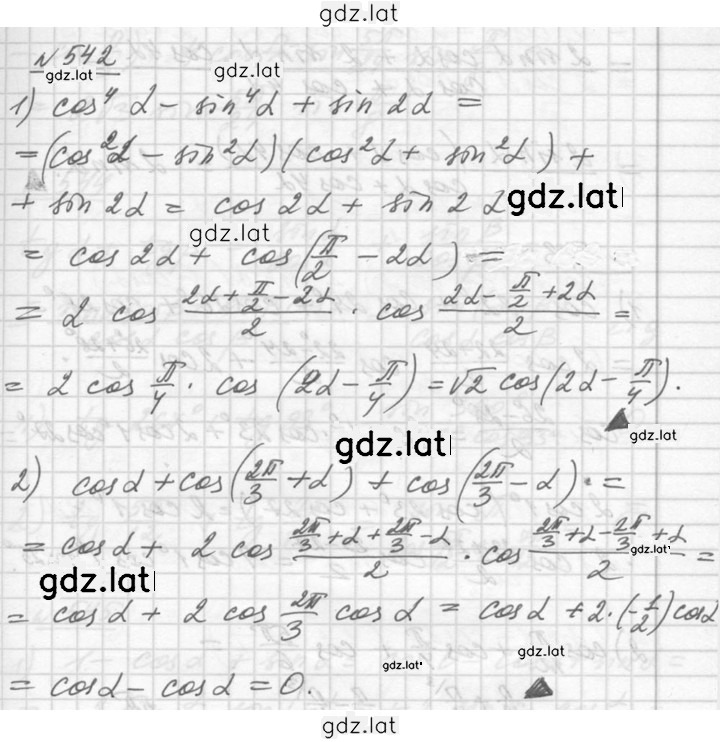 gdz.lat
N 542
gdz.lat
gdz.lat
1) cos⁴ α − sin⁴α + sin 2α =
= (cos²α − sin²α)(cos²α + sin²α) +
+ sin 2α = cos 2α + sin 2α
gdz.lat
gdz.lat
= cos 2α + cos(π/2 − 2α) =
= 2 cos (2α + π/2 − 2α)/2 · cos (2α − π/2 + 2α)/2 =
= 2 cos π/4 · cos (2α − π/4) = √2 cos(2α − π/4).
gdz.lat
gdz.lat
2) cos α + cos(2π/3 + α) + cos(2π/3 − α) =
= cos α + 2 cos (2π/3 + α + 2π/3 − α)/2 · cos (2π/3 + α − 2π/3 + α)/2 =
gdz.lat
gdz.lat
= cos α + 2 cos 2π/3 cos α = cos α + 2·(−1/2) cos α
= cos α − cos α = 0.
gdz.lat
gdz.lat
gdz.lat